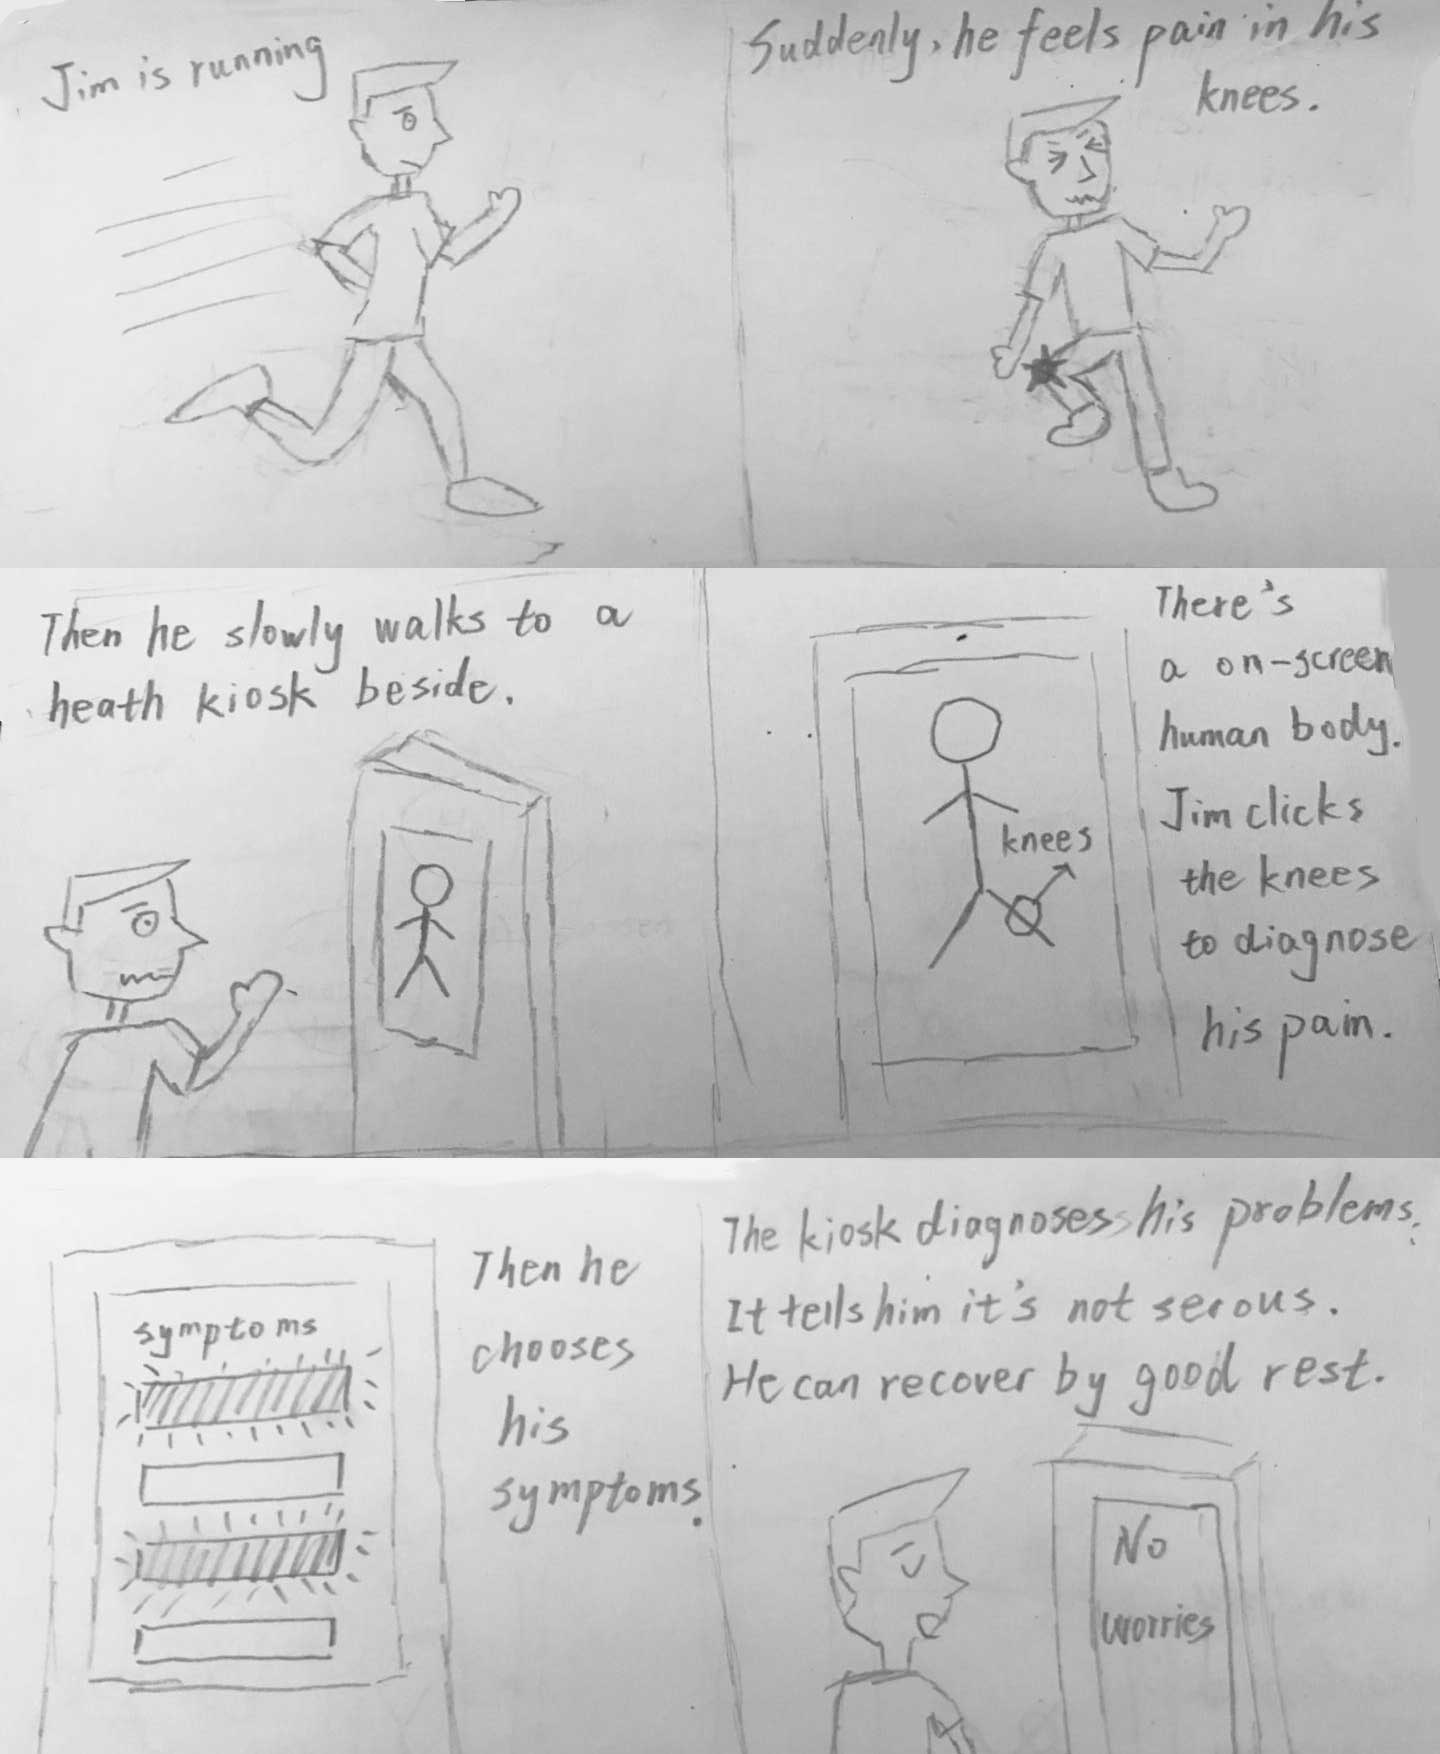 Jim is running
Suddenly, he feels pain in his
knees.
Then he slowly walks to a
heath kiosk beside.
There's
a on-screen
human body.
Jim clicks
the knees
to diagnose
his pain.
knees
symptoms
Then he
chooses
his
symptoms.
The kiosk diagnoses his problems.
It tells him it's not serous.
He can recover by good rest.
No
worries